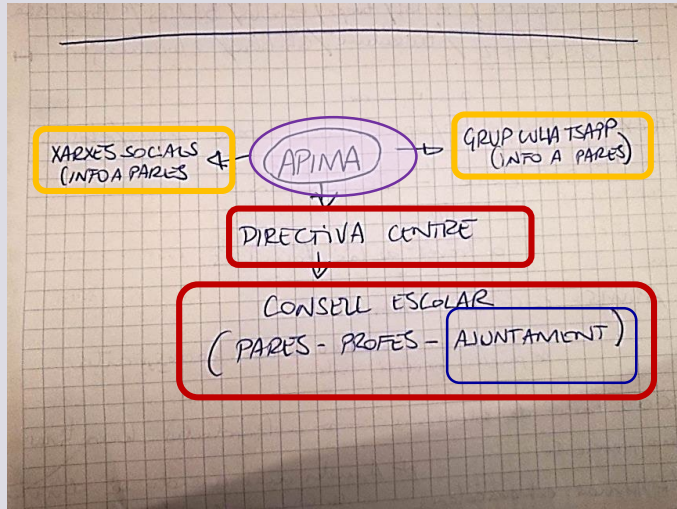 XARXES SOCIALS
(INFO A PARES
APIMA
GRUP WHATSAPP
(INFO A PARES)
DIRECTIVA CENTRE
CONSELL ESCOLAR
(PARES - PROFES - AJUNTAMENT)